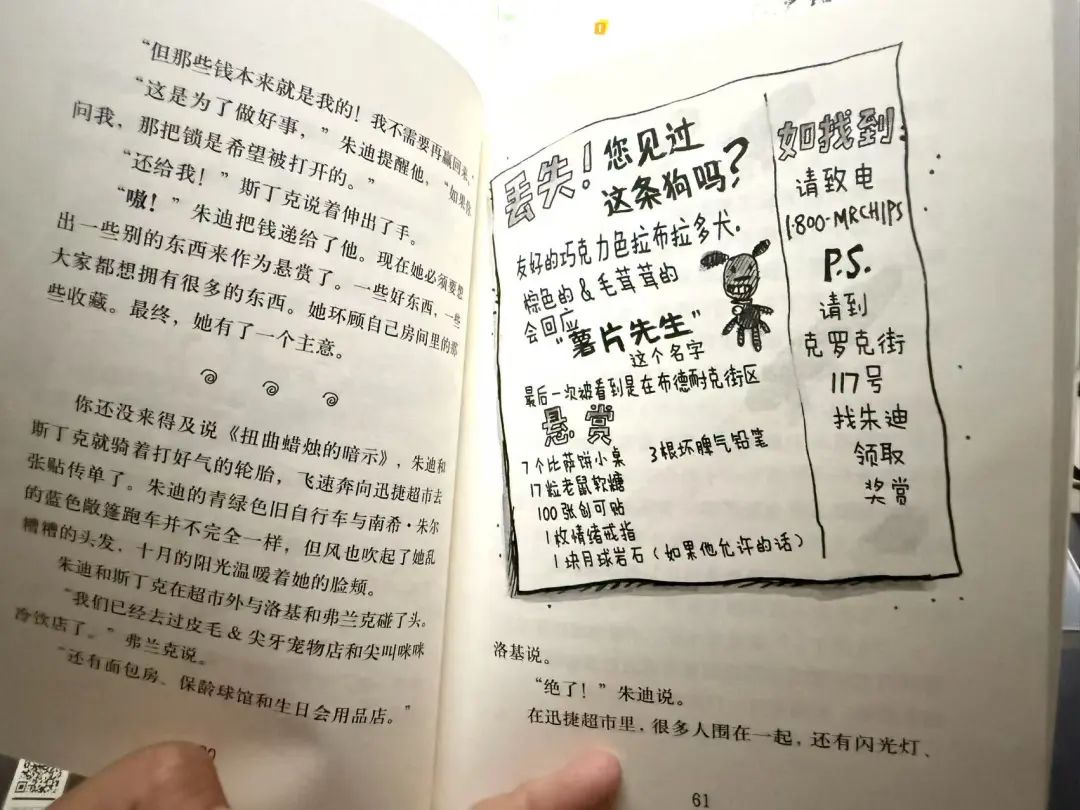 “但那些钱本来就是我的！我不需要再赢回来。”
“这是为了做好事，”朱迪提醒他，“如果你
问我，那把锁是希望被打开的。”
“还给我！”斯丁克说着伸出了手。
“嗷！”朱迪把钱递给了他。现在她必须要想
出一些别的东西来作为悬赏了。一些好东西，一些
大家都想拥有很多的东西。她环顾自己房间里的那
些收藏。最终，她有了一个主意。
你还没来得及说《扭曲蜡烛的暗示》，朱迪和
斯丁克就骑着打好气的轮胎，飞速奔向迅捷超市去
张贴传单了。朱迪的青绿色旧自行车与南希·朱尔
的蓝色敞篷跑车并不完全一样，但风也吹起了她乱
糟糟的头发，十月的阳光温暖着她的脸颊。
朱迪和斯丁克在超市外与洛基和弗兰克碰了头。
“我们已经去过皮毛 & 尖牙宠物店和尖叫咪咪
冷饮店了。”弗兰克说。
“还有面包房、保龄球馆和生日会用品店。”
丢失！您见过
这条狗吗？
友好的巧克力色拉布拉多犬.
棕色的 & 毛茸茸的
会回应
“薯片先生”
这个名字
最后一次被看到是在布德耐克街区
悬赏
7个比萨饼小桌
3根坏脾气铅笔
17粒老鼠软糖
100张创可贴
1枚情绪戒指
1块月球岩石（如果他允许的话）
如找到:
请致电
1-800-MRCHIPS
P.S.
请到
克罗克街
117号
找朱迪
领取
奖赏
洛基说。
“绝了！”朱迪说。
在迅捷超市里，很多人围在一起，还有闪光灯、
61